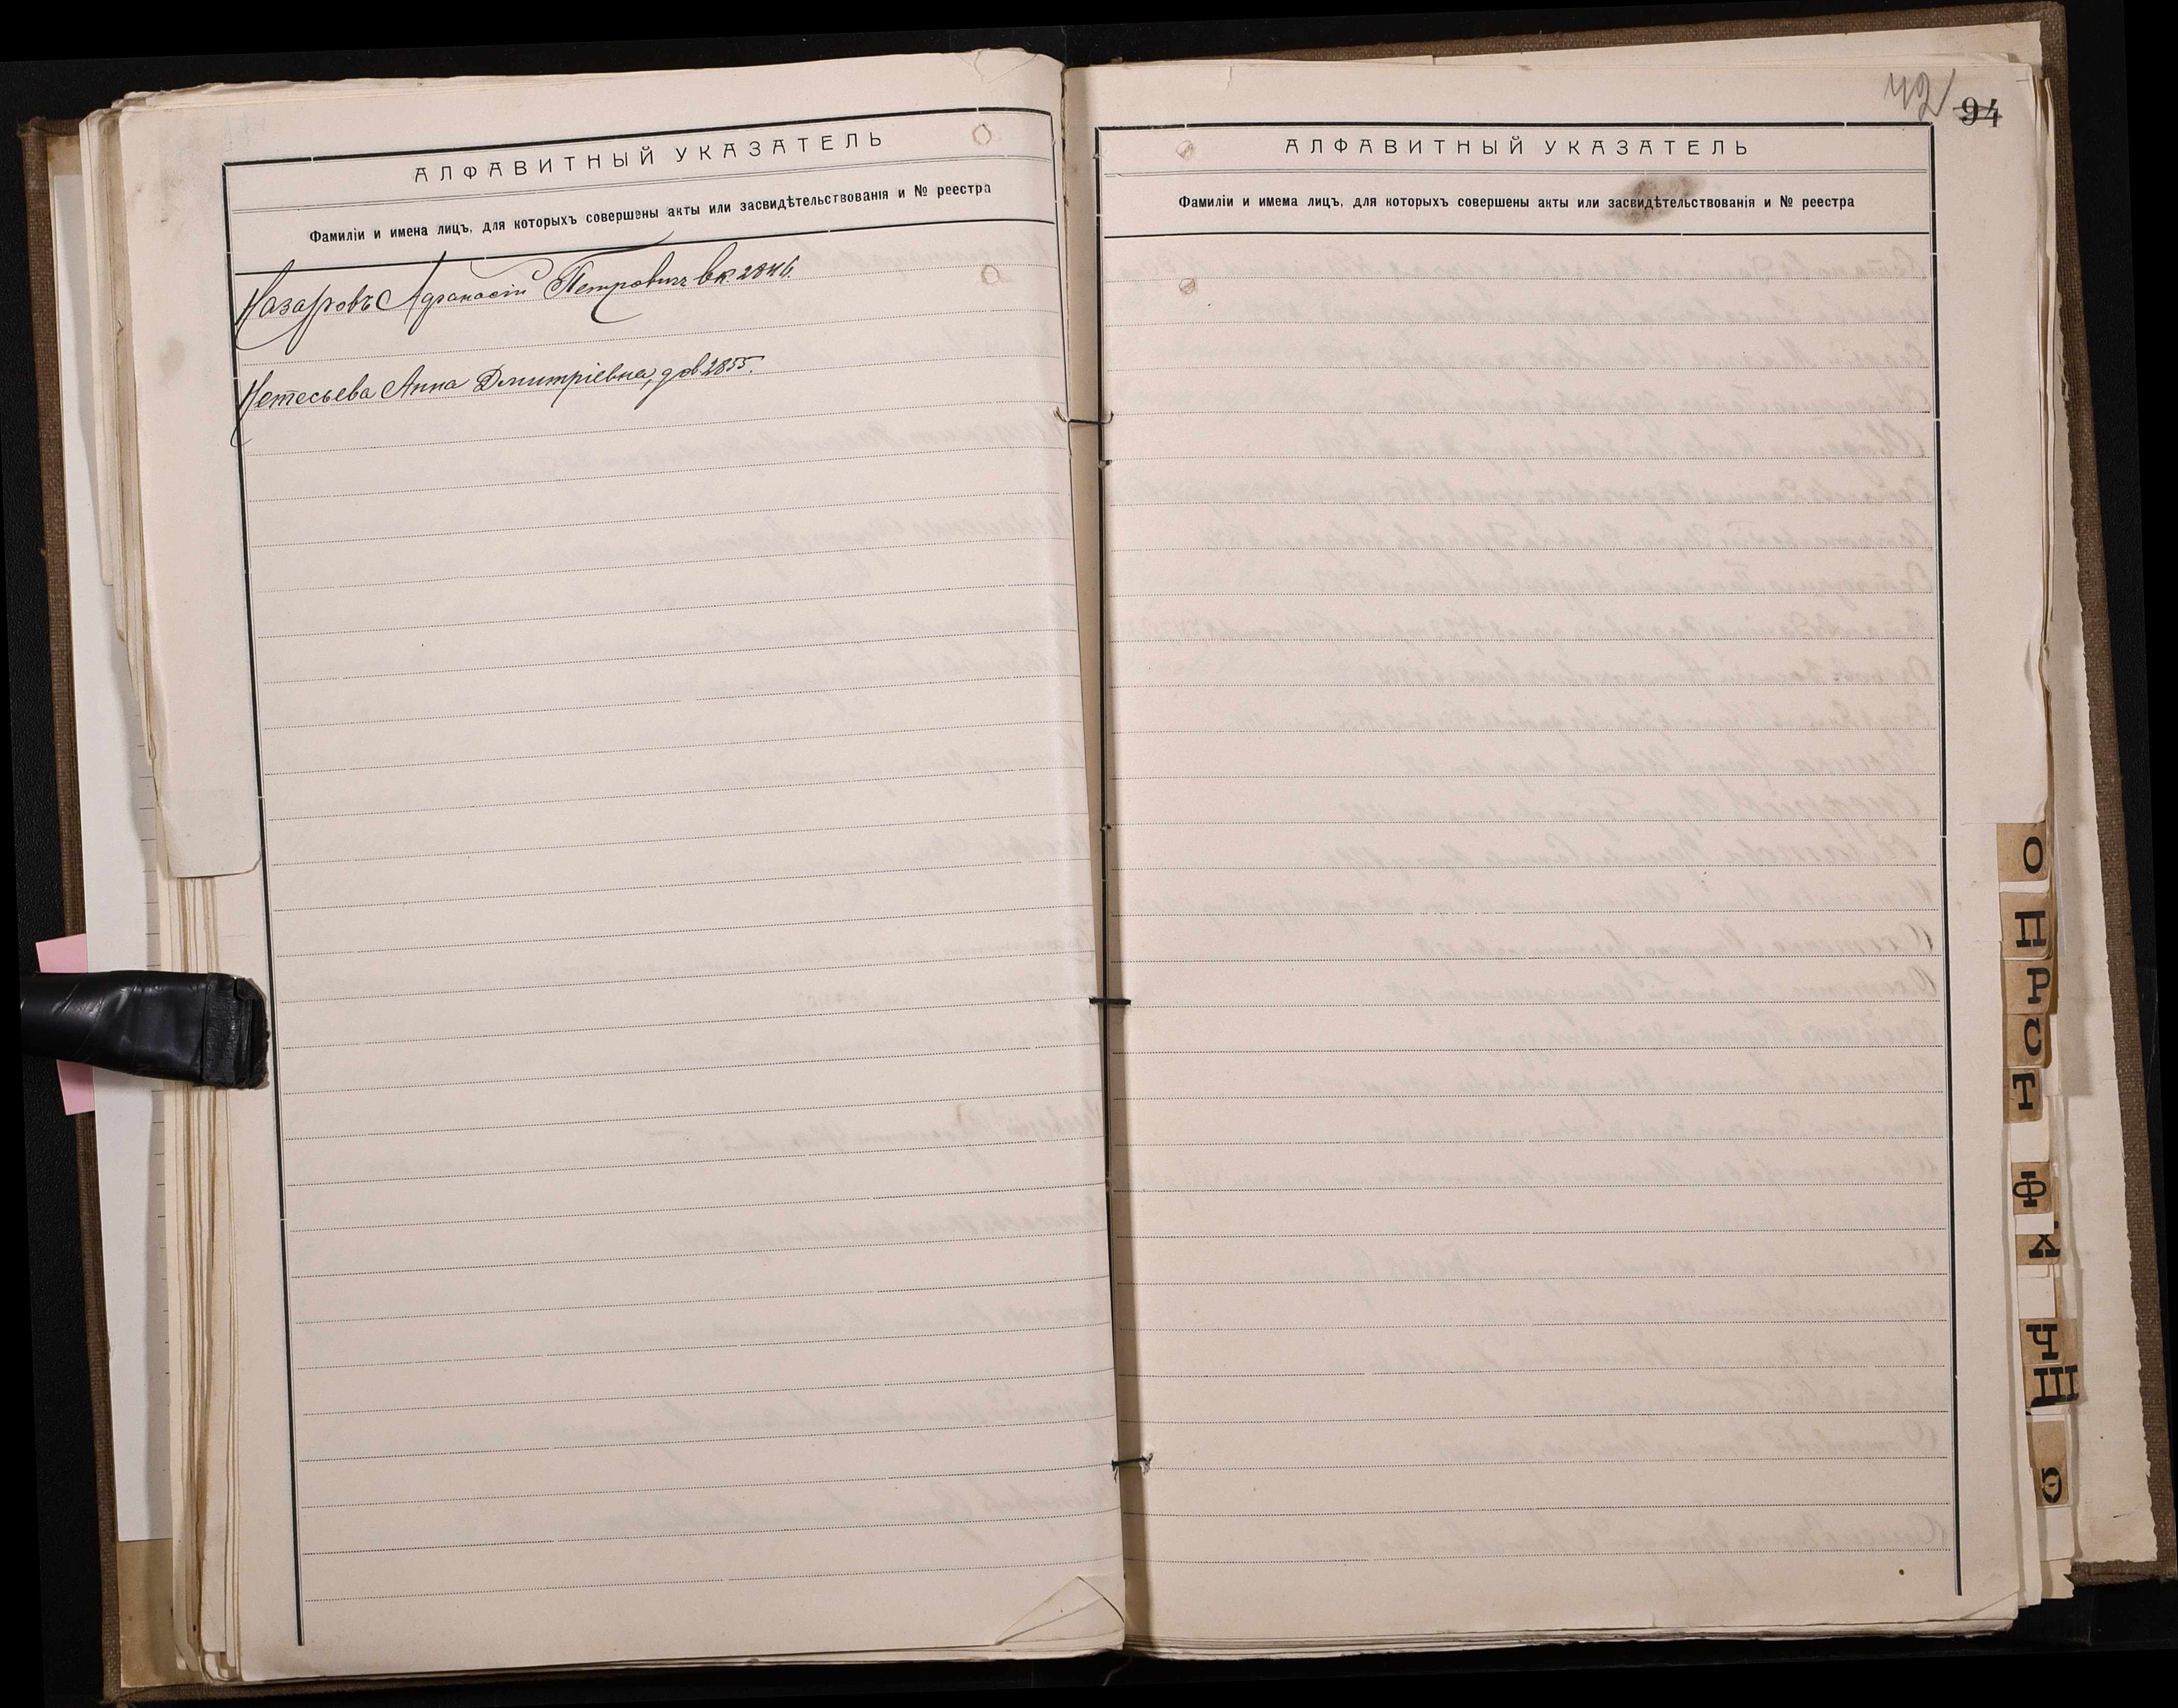 АЛФАВИТНЫЙ УКАЗАТЕЛЬ
Фамиліи и имена лицъ, для которыхъ совершены акты или засвидѣтельствованія и № реестра
Назаровъ Афанасій Петровичъ вк. 2846.
Нетесьева Анна Дмитріевна, дов 2855.
42
94
АЛФАВИТНЫЙ УКАЗАТЕЛЬ
Фамиліи и имема лицъ, для которыхъ совершены акты или засвидѣтельствованія и № реестра
О
П
Р
С
Т
Ф
Х
Ч
Ш
Э